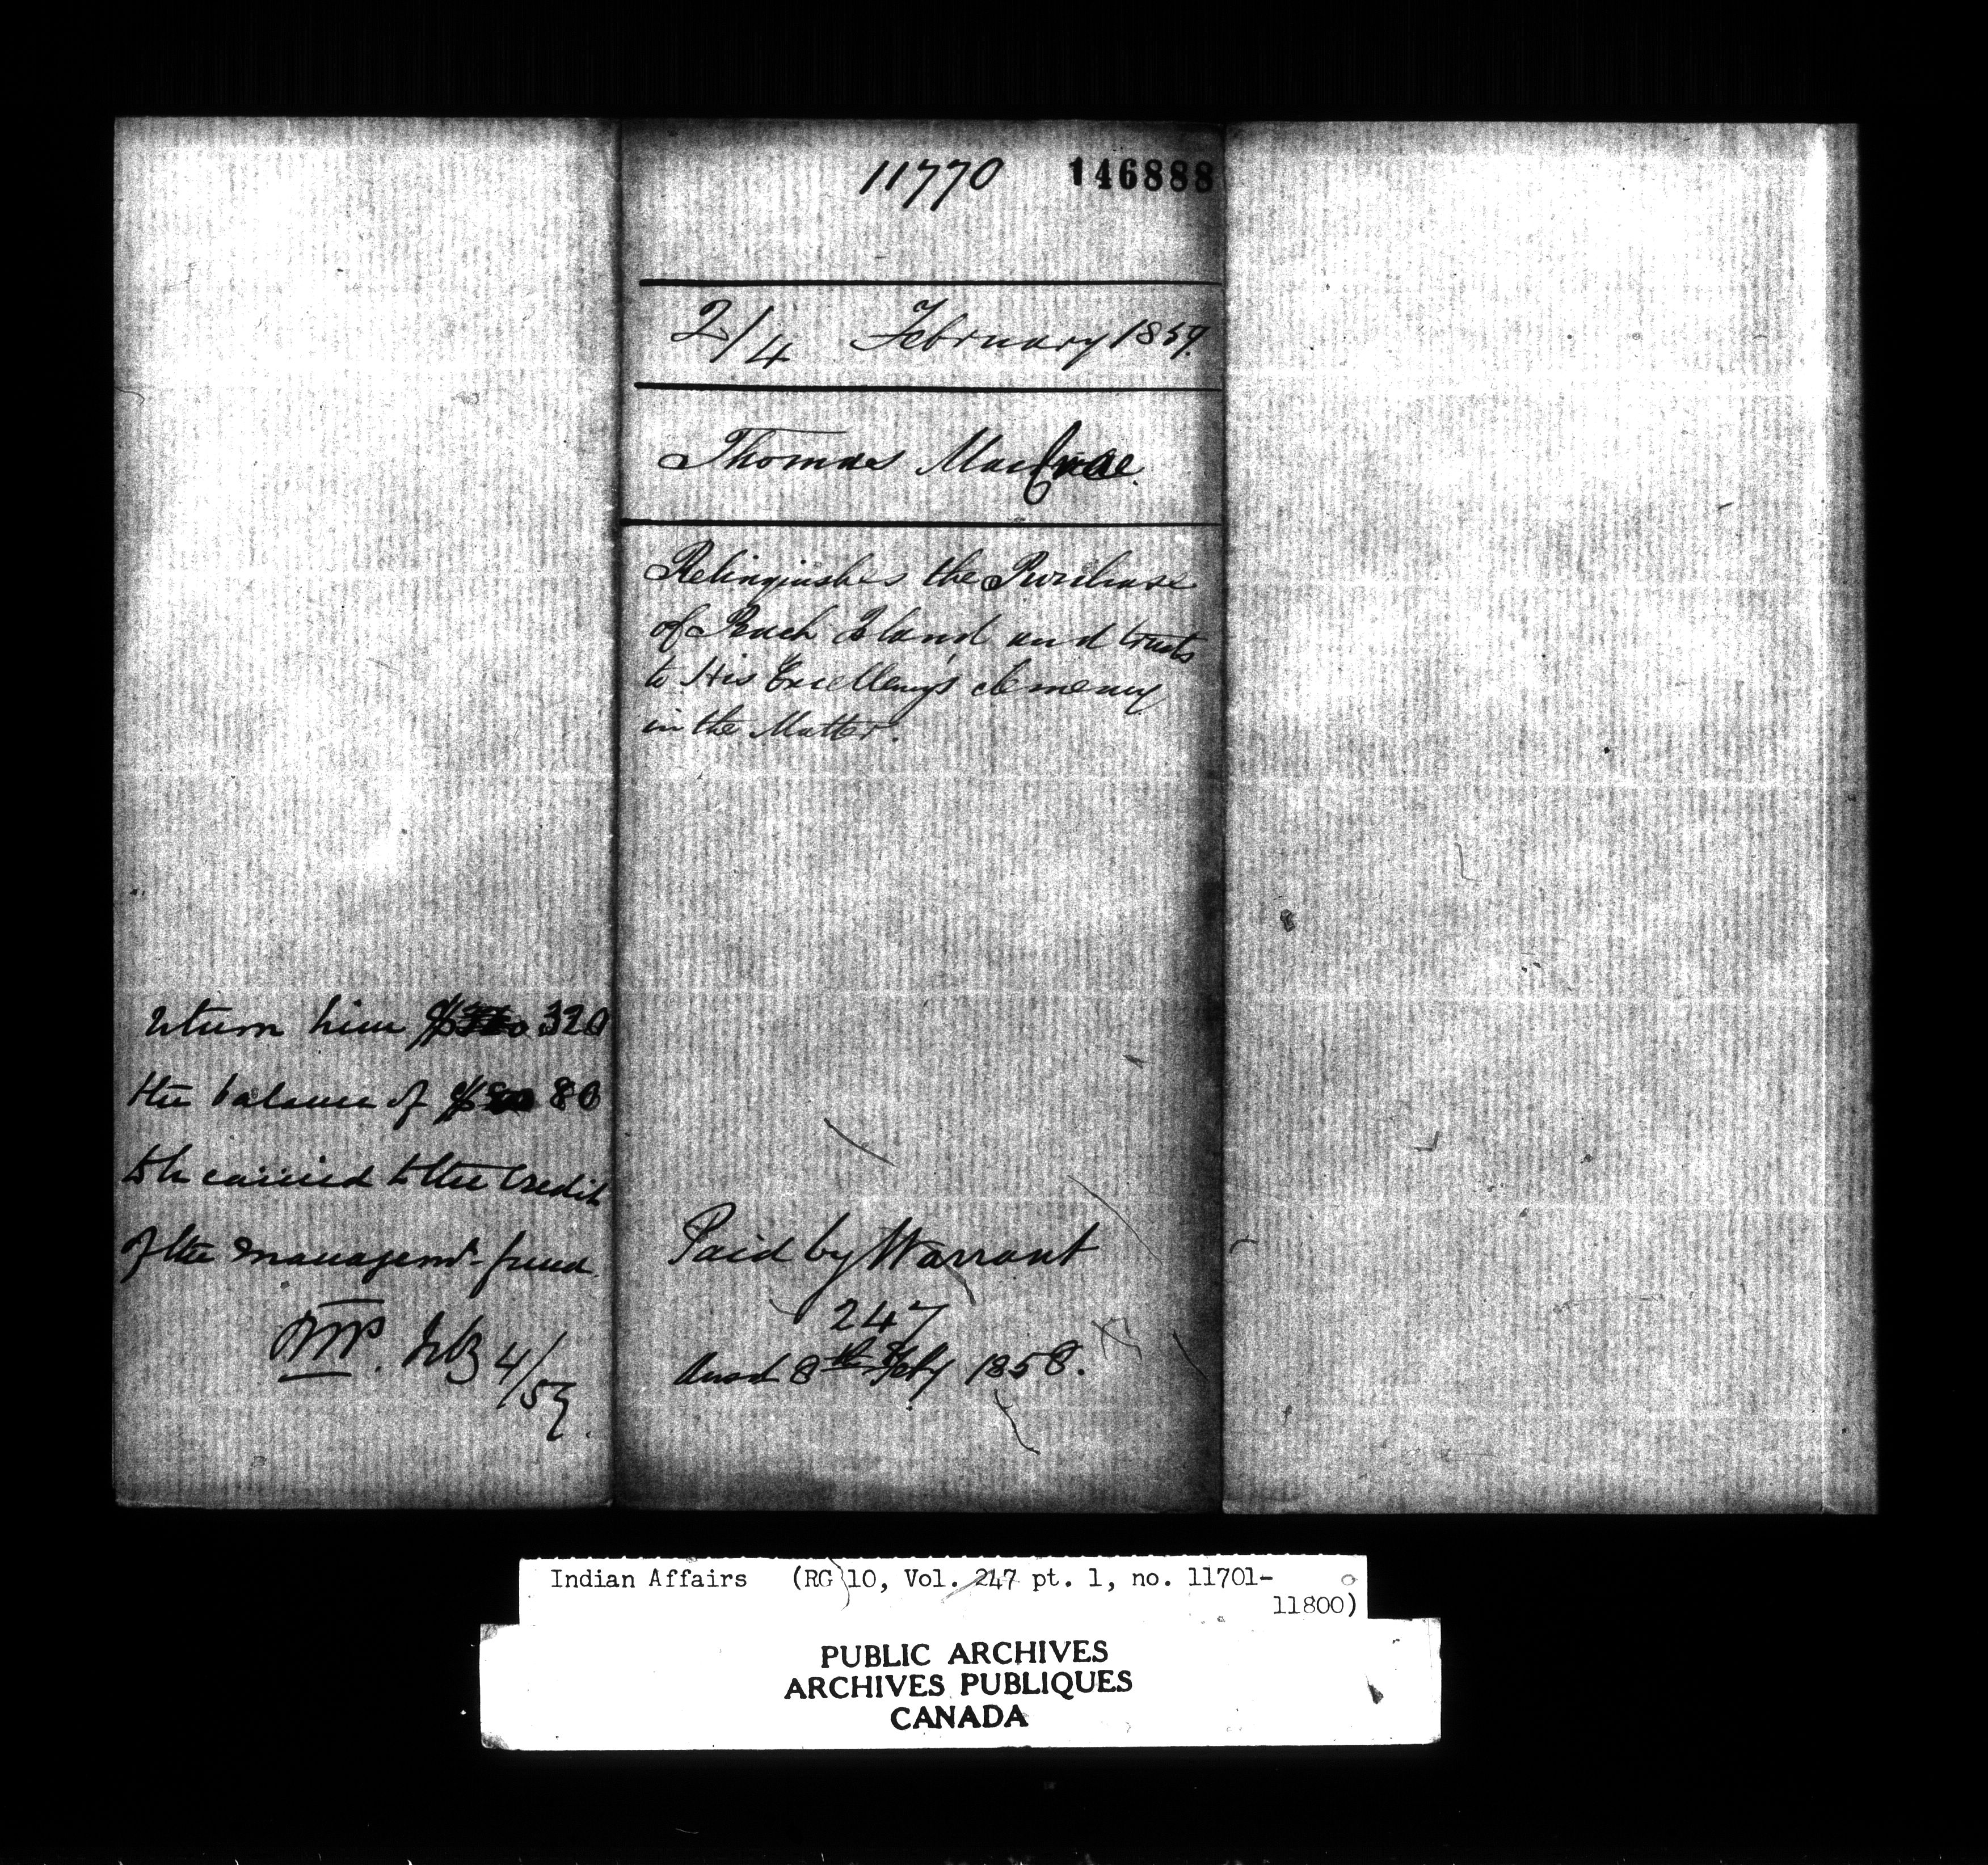 return him $320
the balance of $80
to be carried to the Credit
of the managemt. fund.
Feb 4/59.
11770 146888
2/4 February 1859.
Thomas MacCrae.
Relinquishes the Purchase
of Peach Island and trusts
to His Excellency's clemency
in the Matter.
Paid by Warrant
247
8th Feby 1858.
Indian Affairs (RG 10, Vol. 247 pt. 1, no. 11701-
11800)
PUBLIC ARCHIVES
ARCHIVES PUBLIQUES
CANADA